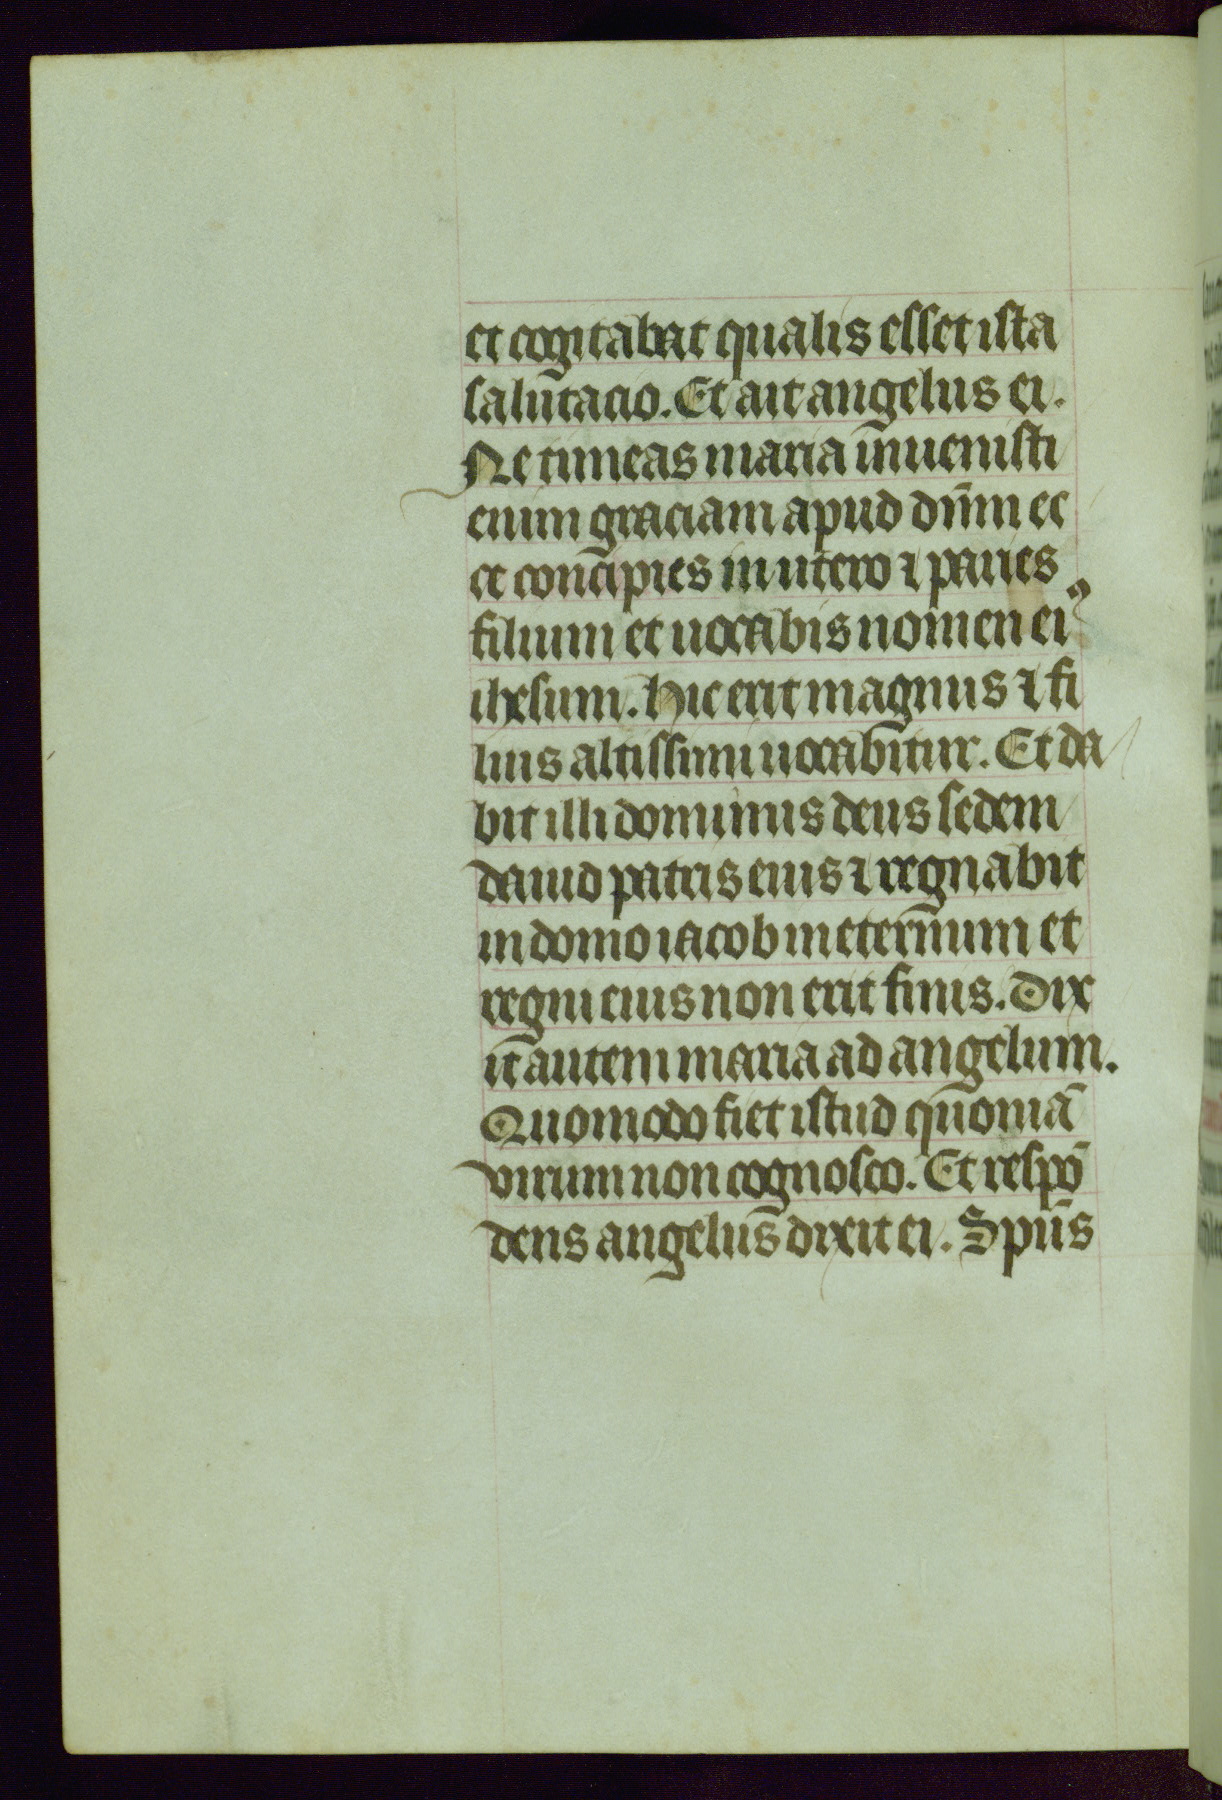 et cogitabat qualis esset ista
salutacio. Et ait angelus ei.
Ne timeas maria inuenisti
enim graciam apud dn̄m ec
ce concipies in utero ⁊ paries
filium et uocabis nomen eiꝰ
ihesum. hic erit magnus ⁊ fi
lius altissimi uocabitur. Et da
bit illi dominus deus sedem
dauid patris eius ⁊ regnabit
in domo iacob in eternum et
regni eius non erit finis. Dix
it autem maria ad angelum.
Quomodo fiet istud quoniā
virum non cognosco. Et respō
dens angelus dixit ei. Spūs